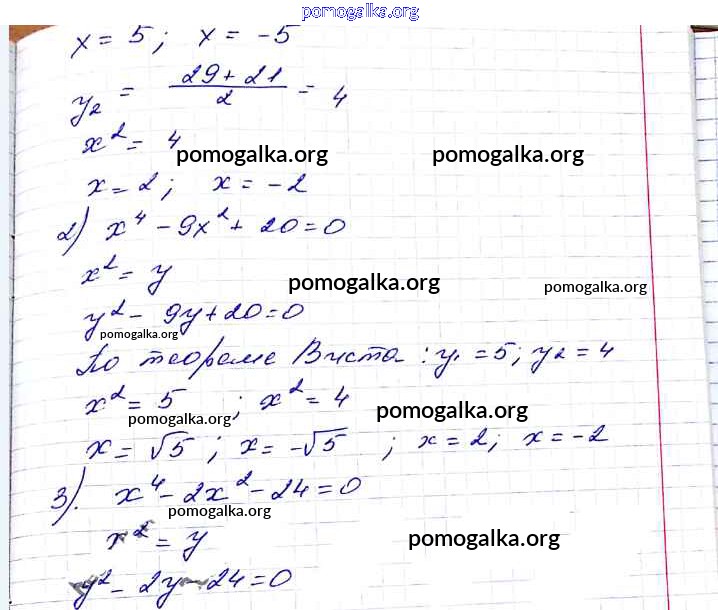 pomogalka.org
x = 5; x = -5
y₂ = (29 + 21)/2 = 4
x² = 4
pomogalka.org pomogalka.org
x = 2; x = -2
2) x⁴ - 9x² + 20 = 0
x² = y
pomogalka.org pomogalka.org
y² - 9y + 20 = 0
pomogalka.org
По теореме Виета: y₁ = 5; y₂ = 4
x² = 5; x² = 4
pomogalka.org pomogalka.org
x = √5; x = -√5; x = 2; x = -2
3). x⁴ - 2x² - 24 = 0
pomogalka.org
x² = y
pomogalka.org
y² - 2y - 24 = 0